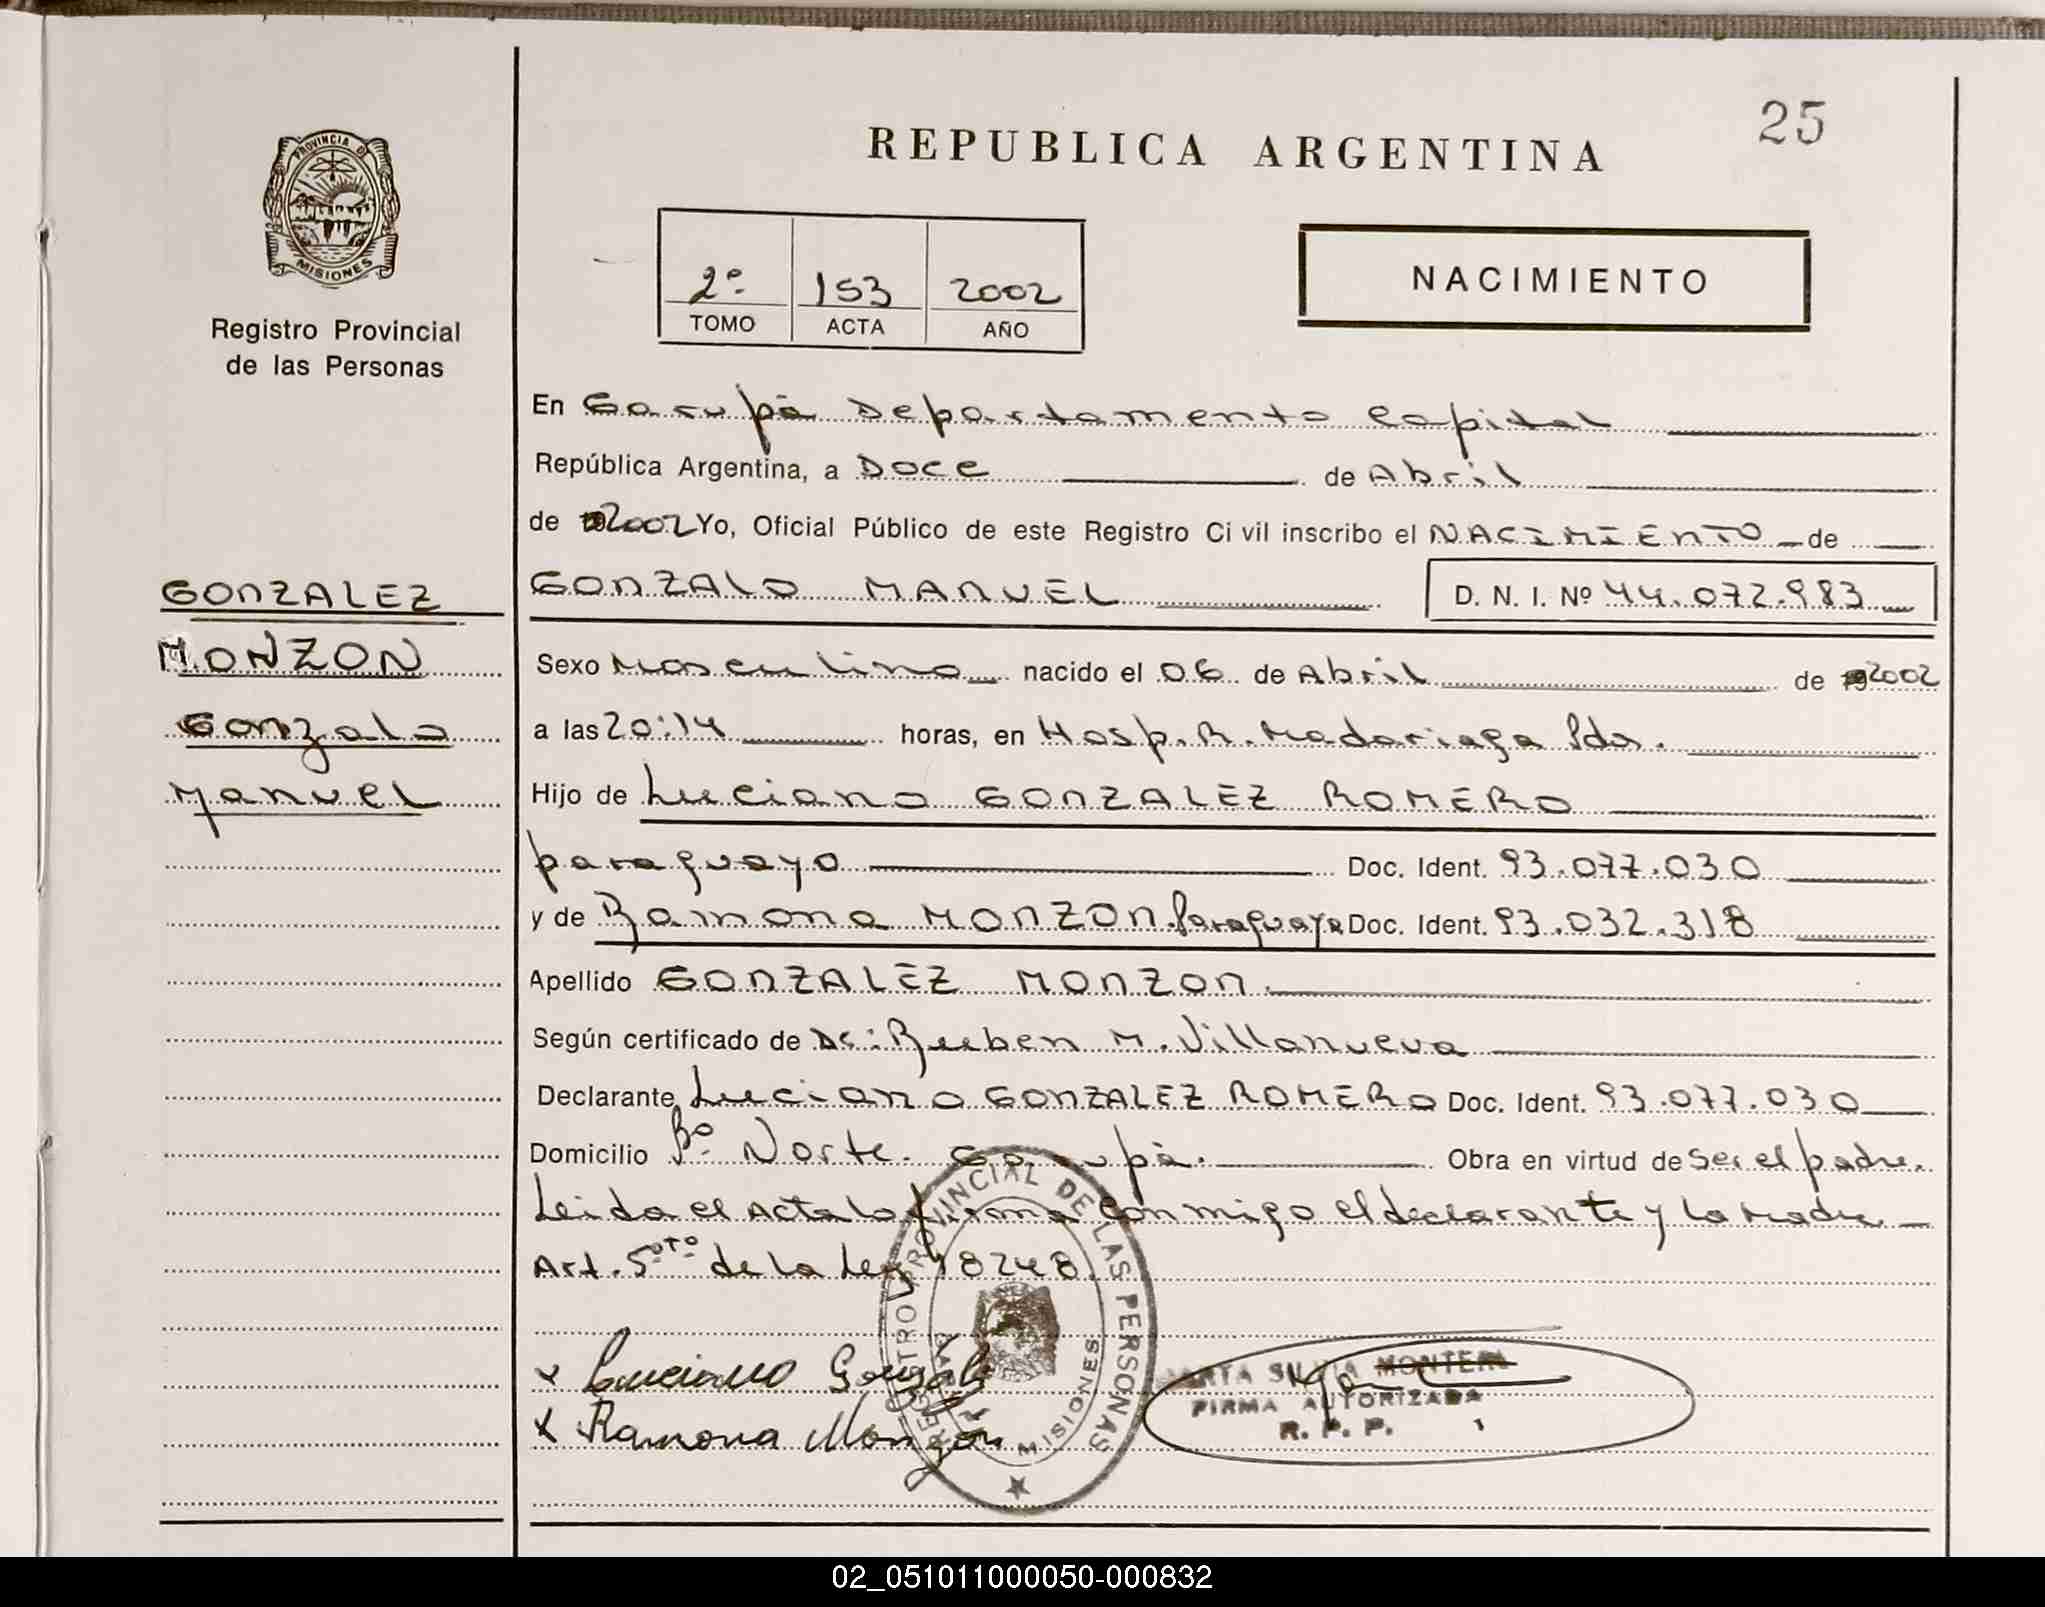 25
REPUBLICA ARGENTINA
PROVINCIA DE
MISIONES
Registro Provincial
de las Personas
2º 153 2002
TOMO ACTA AÑO
NACIMIENTO
En Garupá Departamento Capital
República Argentina, a Doce de Abril
de 2002 Yo, Oficial Público de este Registro Civil inscribo el NACIMIENTO de
GONZALEZ
MONZON
Gonzalo
Manuel
GONZALO MANUEL D. N. I. Nº 44.072.983
Sexo Masculino nacido el 06 de Abril de 192002
a las 20:14 horas, en Hosp. R. Madariaga Pdas.
Hijo de Luciano GONZALEZ ROMERO
paraguayo Doc. Ident. 93.077.030
y de Ramona MONZON. Paraguaya Doc. Ident. 93.032.318
Apellido GONZALEZ MONZON.
Según certificado de Dr: Rueben M. Villanueva
Declarante Luciano GONZALEZ ROMERO Doc. Ident. 93.077.030
Domicilio Bº Norte. Garupá. Obra en virtud de Ser el padre.
Leida el Acta la firma conmigo el declarante y la Madre
Art. 5ºTº de la Ley 18248
x Luciano Gonzalez
x Ramona Monzón
REGISTRO PROVINCIAL DE LAS PERSONAS
MISIONES
MARTA SILVIA MONTERO
FIRMA AUTORIZADA
R. P. P.
02_051011000050-000832